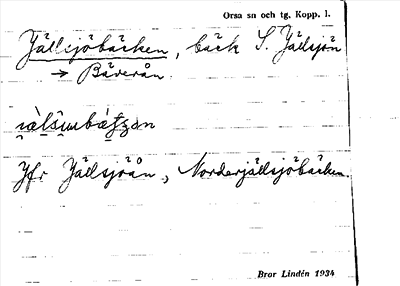 Orsa sn och tg. Kopp. l.
Jällsjöbäcken, bäck S. Jällsjön
→ Bäverån.
Jfr Jällsjöån, Norderjällsjöbäcken.
Bror Lindén 1934